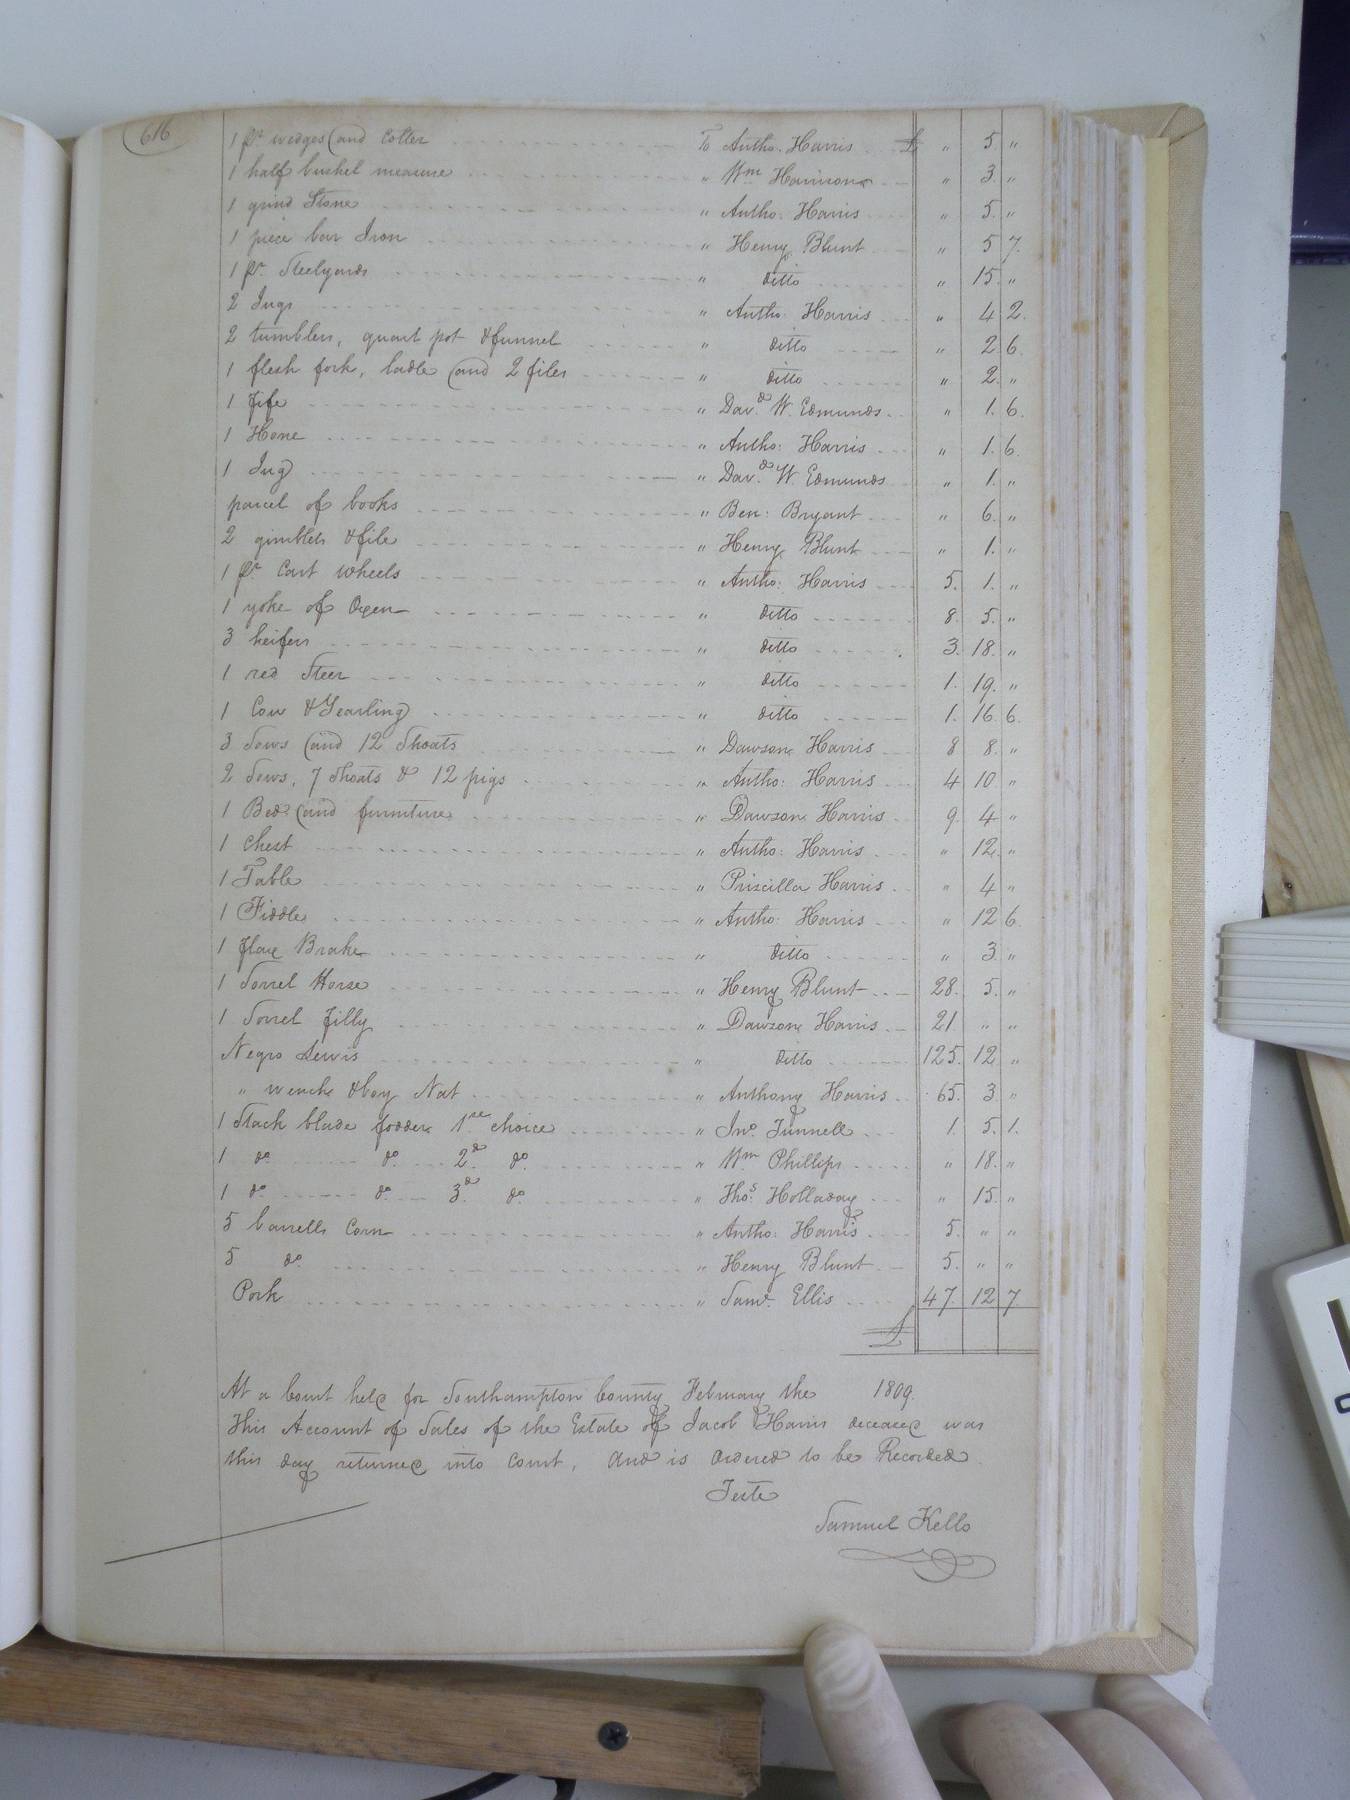 616
1 pr wedges and Colter To Antho. Harris £ " 5. "
1 half bushel measure " Wm Harrison " 3. "
1 grind Stone " Antho. Harris " 5. "
1 piece bar Iron " Henry Blunt " 5 7.
1 pr. Steelyards " ditto " 15. "
2 Jugs " Antho: Harris " 4 2.
2 tumblers, quart pot & funnel " ditto " 2. 6.
1 flesh fork, ladle and 2 files " ditto " 2. "
1 fife " Davd. W. Edmunds " 1. 6.
1 Hone " Antho: Harris " 1. 6.
1 Jug " Davd. W. Edmunds " 1. "
parcel of books " Ben: Bryant " 6. "
2 gimblets & file " Henry Blunt " 1. "
1 pr Cart wheels " Antho: Harris 5. 1. "
1 yoke of Oxen " ditto 8. 5. "
3 heifers " ditto 3. 18. "
1 red Steer " ditto 1. 19. "
1 Cow & Yearling " ditto 1. 16. 6.
3 Sows and 12 Shoats " Dawson Harris 8 8. "
2 Sows, 7 Shoats & 12 pigs " Antho: Harris 4 10. "
1 Bed and furniture " Dawson Harris 9. 4 "
1 Chest " Antho: Harris " 12. "
1 Table " Priscilla Harris " 4 "
1 Fiddle " Antho: Harris " 12 6.
1 flax Brake " ditto " 3. "
1 Sorrel Horse " Henry Blunt 28. 5. "
1 Sorrel filly " Dawson Harris 21. " "
Negro Lewis " ditto 125. 12. "
" wench & boy Nat " Anthony Harris 65. 3. "
1 Stack blade fodder 1st choice " Jno. Tunnell 1. 5. 1.
1 do. do. 2d. do. " Wm Phillips " 18. "
1 do. do. 3d. do. " Thos. Holladay " 15. "
5 barrells Corn " Antho: Harris 5. " "
5 do. " Henry Blunt 5. " "
Pork " Saml. Ellis 47. 12 7.
£
At a Court held for Southampton County February the 1809.
This Account of Sales of the Estate of Jacob Harris deceased was
this day returned into Court, and is Ordered to be Recorded.
Teste
Samuel Kello